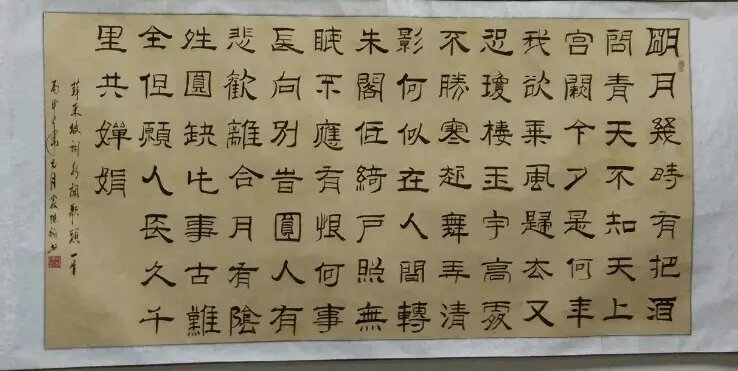 明月幾時有把酒
問青天不知天上
宮闕今夕是何年
我欲乘風歸去又
恐瓊樓玉宇高處
不勝寒起舞弄清
影何似在人間轉
朱閣低綺戶照無
眠不應有恨何事
長向別旹圓人有
悲歡離合月有陰
姓圓缺此事古難
全但願人長久千
里共嬋娟
蘇東坡詞水調歌頭一首
丙申年元月